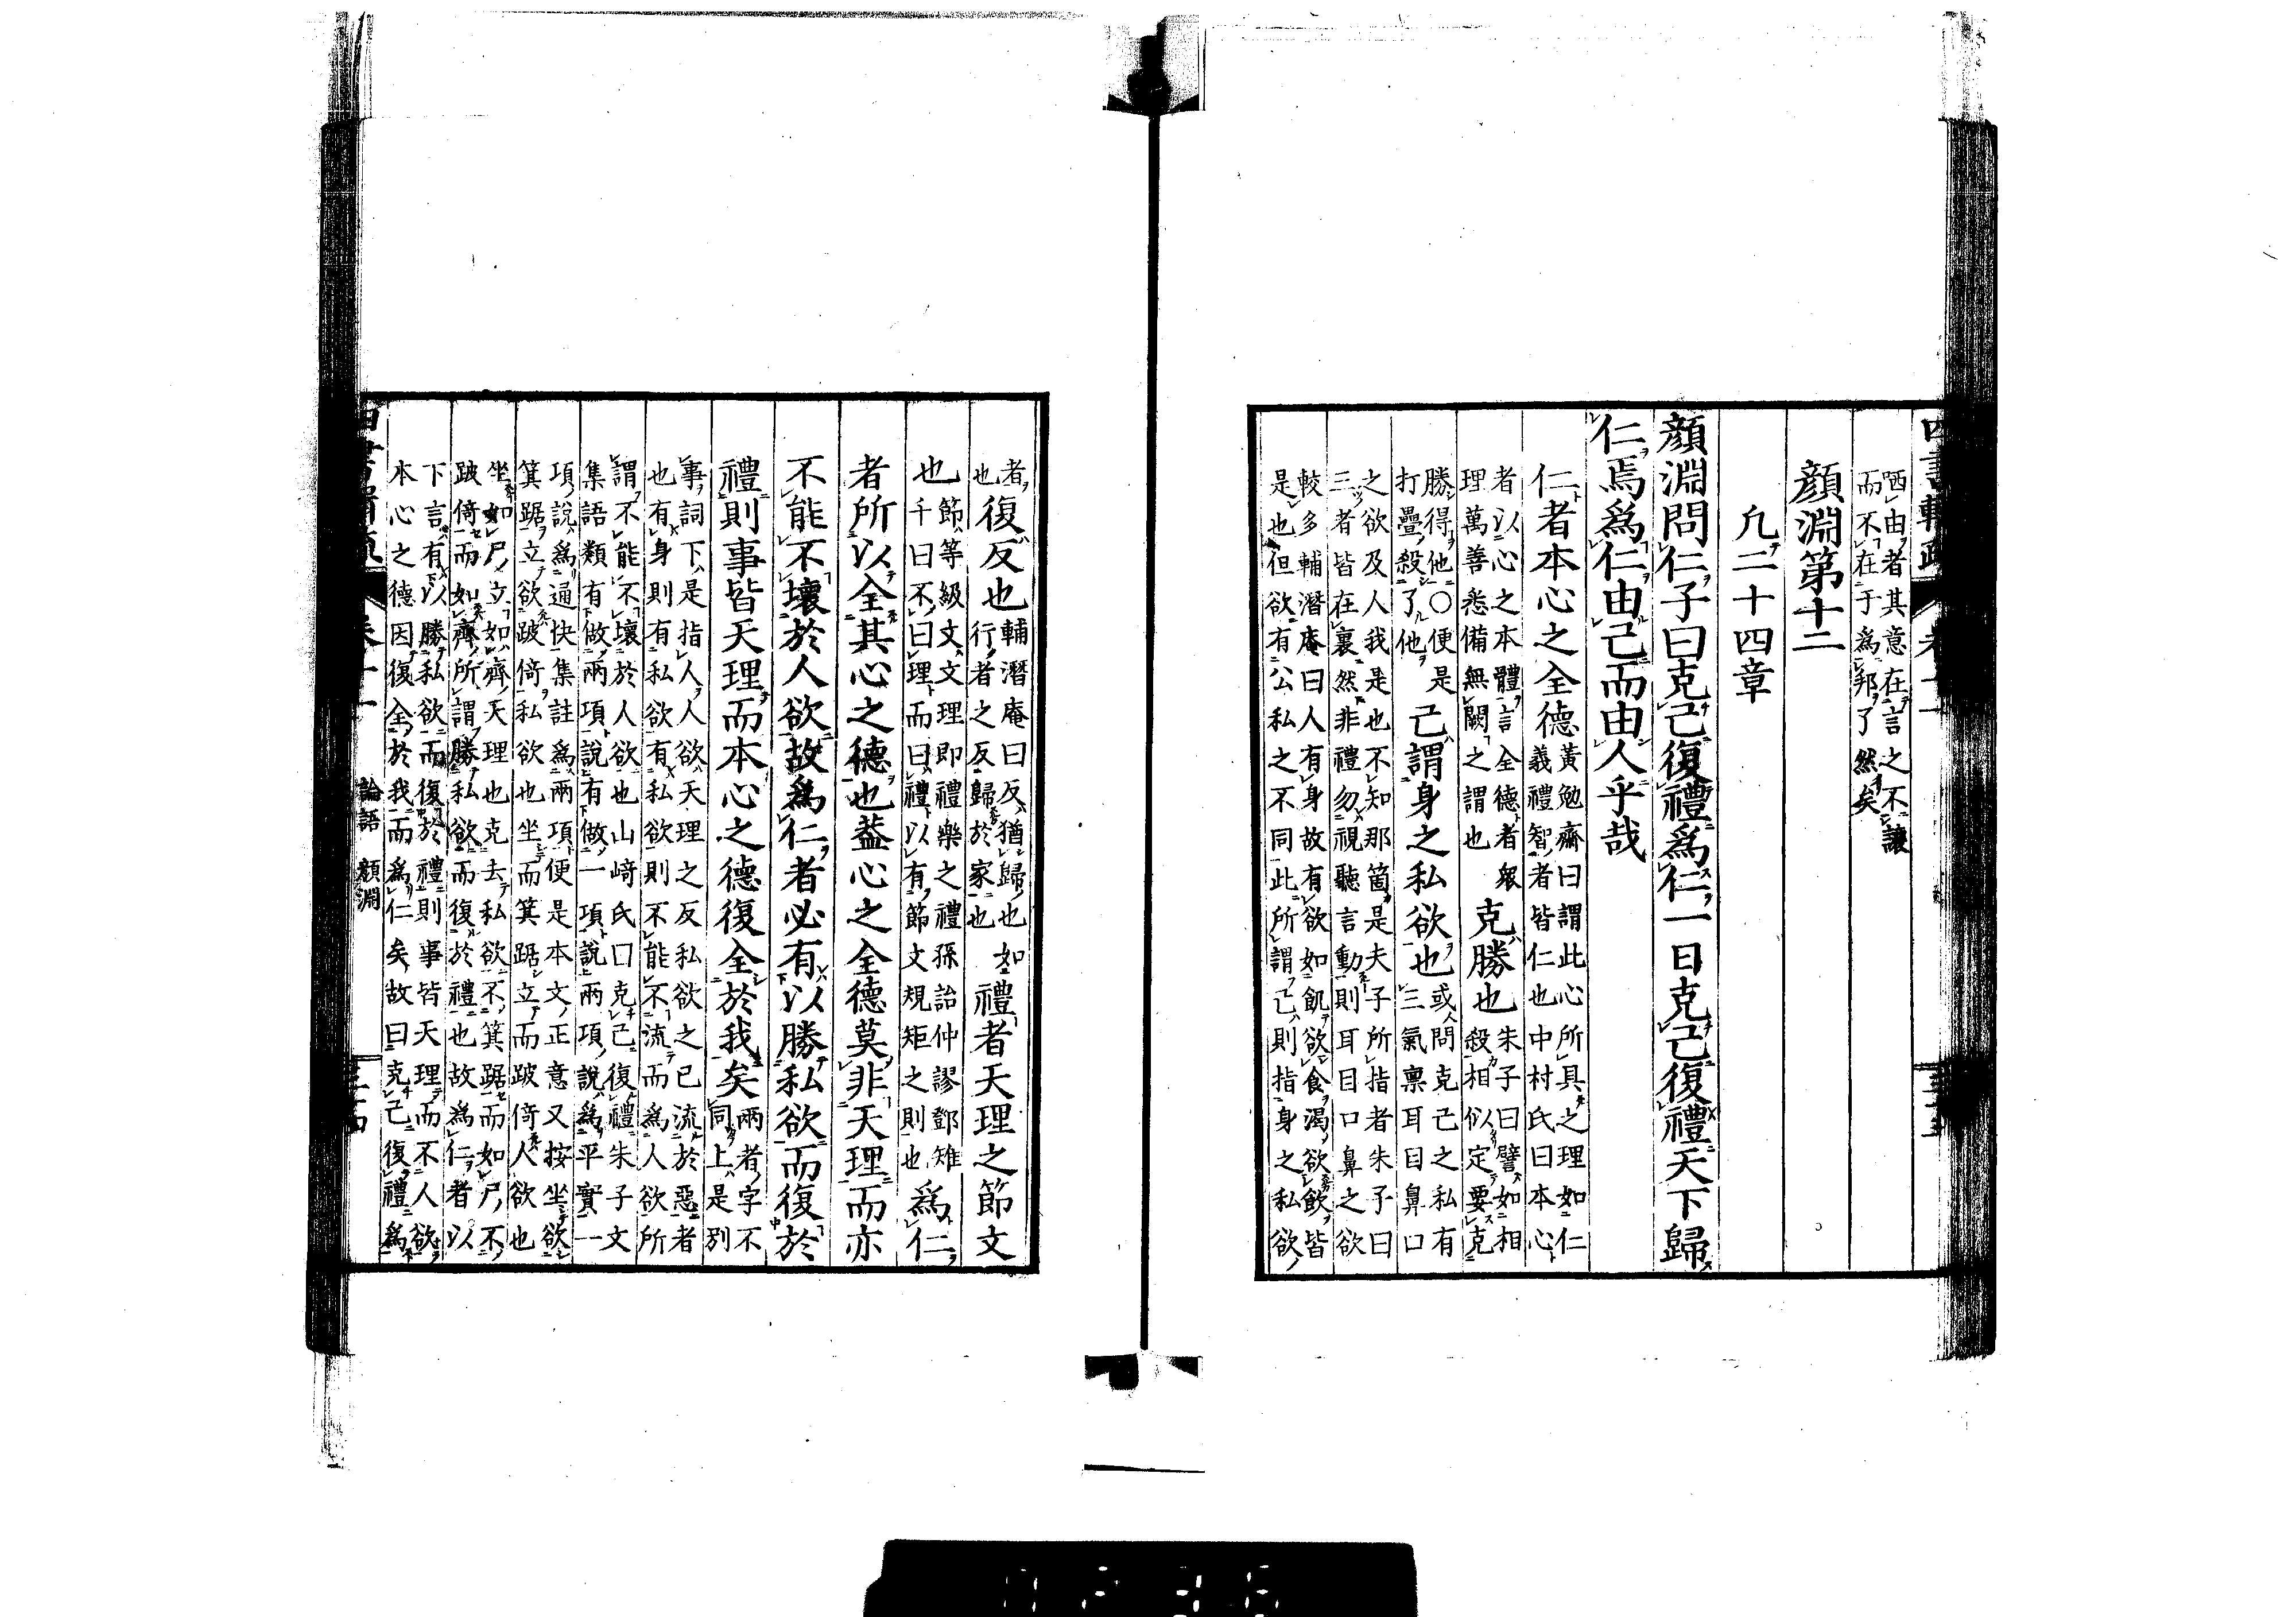 哂由者其意在言之不讓
而不在于爲邦了然矣
顏淵第十二
凡二十四章
顏淵問仁子曰克己復禮爲仁一日克己復禮天下歸
仁焉爲仁由己而由人乎哉
仁者本心之全德
黃勉齋曰謂此心所具之理如仁
義禮智者皆仁也中村氏曰本心
者以心之本體言全德者衆
理萬善悉備無闕之謂也
克勝也
朱子曰譬如相
殺相似定要克
勝得他○便是
打疊殺了他
己謂身之私欲也
或問克己之私有
三氣禀耳目鼻口
之欲及人我是也不知那箇是夫子所指者朱子曰
三者皆在裏然非禮勿視聽言動則耳目口鼻之欲
較多輔潛庵曰人有身故有欲如飢欲食渴欲飲皆
是也但欲有公私之不同此所謂己則指身之私欲
者
也
復反也
輔潛庵曰反猶歸也如
行者之反歸於家也
禮者天理之節文
也
節等級文文理即禮樂之禮孫詒仲謬鄧雉
千曰不曰理而曰禮以有節文規矩之則也
爲仁
者所以全其心之德也蓋心之全德莫非天理而亦
不能不壞於人欲故爲仁者必有以勝私欲而復於
禮則事皆天理而本心之德復全於我矣
兩者字不
同上是別
事詞下是指人人欲天理之反私欲之已流於惡者
也有身則有私欲有私欲則不能不流而爲人欲所
謂不能不壞於人欲也山﨑氏曰克己復禮朱子文
集語類有做兩項說有做一項說兩項說爲平實一
項說爲通快集註爲兩項便是本文正意又按坐欲
箕踞立欲跛倚私欲也坐而箕踞立而跛倚人欲也
坐如尸立如齊天理也克去私欲不箕踞而如尸不
跛倚而如齊所謂勝私欲而復於禮也故爲仁者以
下言有以勝私欲而復於禮則事皆天理而不人欲
本心之德因復全於我而爲仁矣故曰克己復禮爲
論語 顏淵